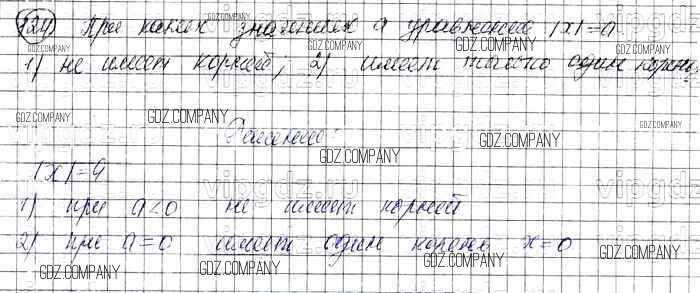 124) При каких значениях a уравнение |x|=a
1) не имеет корней; 2) имеет только один корень;
Решение:
|x|=a
1) при a<0 не имеет корней
2) при a=0 имеет один корень x=0
GDZ.COMPANY
vipgdz.ru